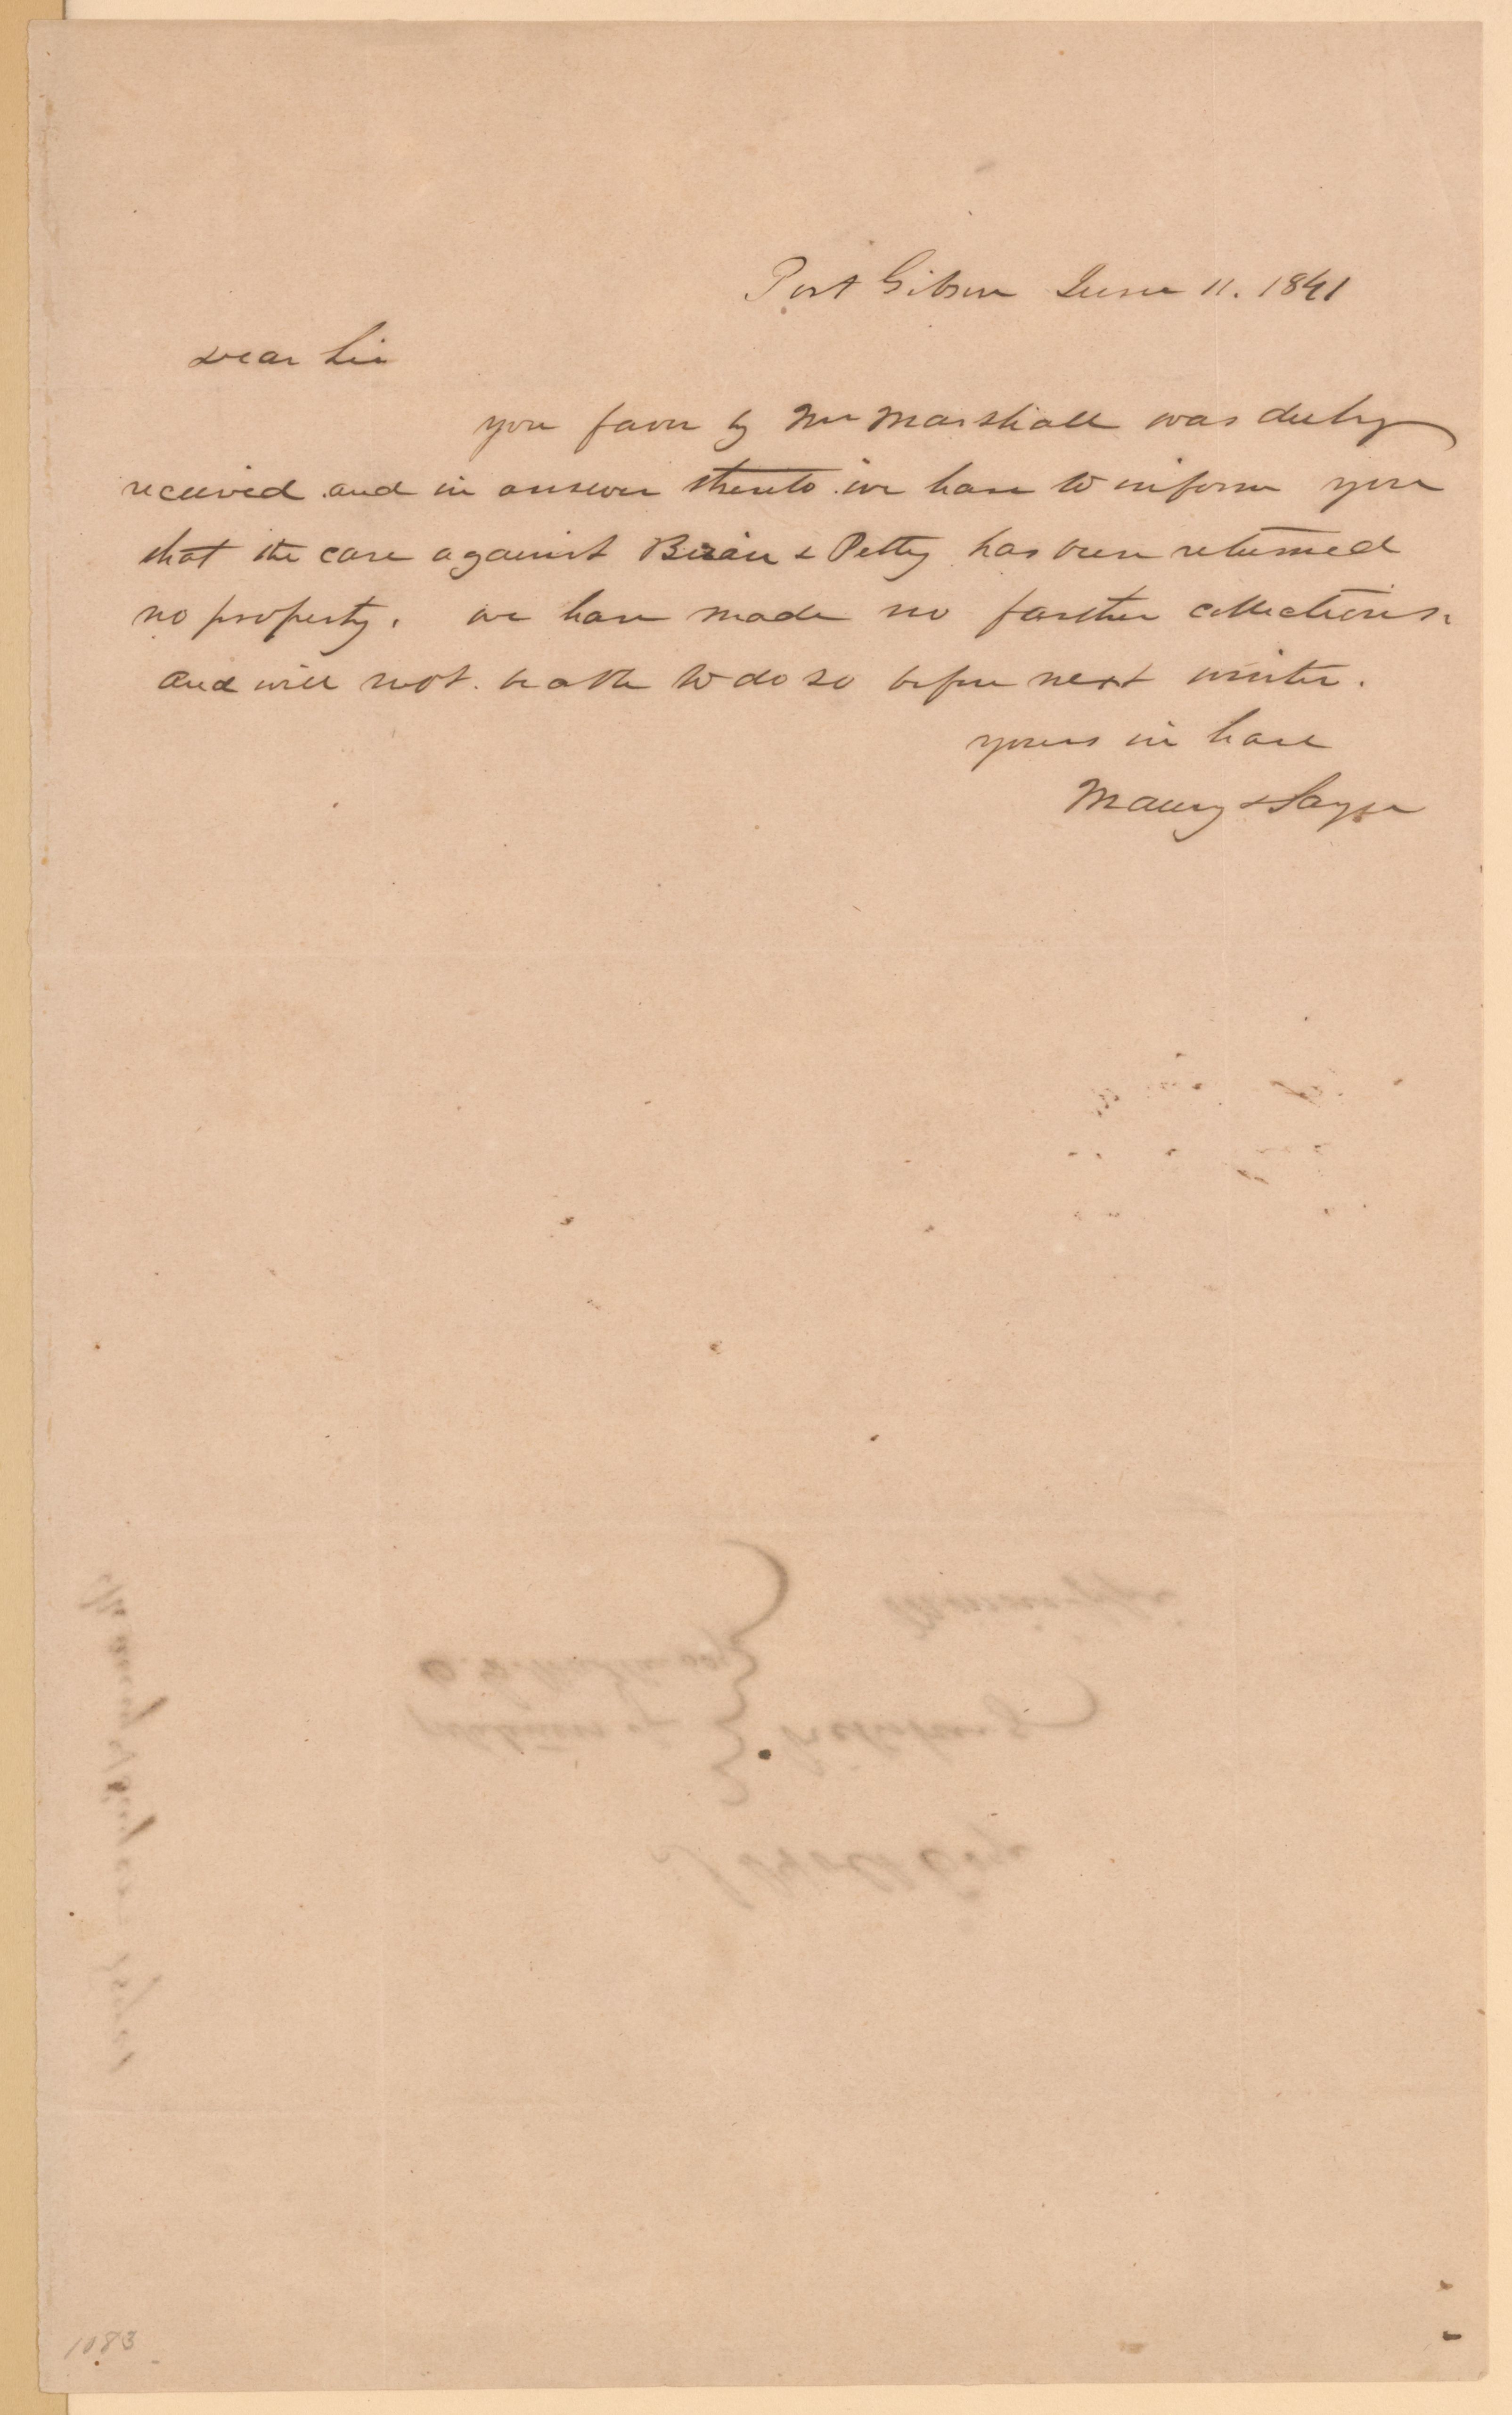 Port Gibson June 11. 1841
Dear Sir
your favor by Mr Marshall was duly
received and in answer thereto we have to inform you
that the case against & Petty has been returned
no property. we have made no farther collections.
and will not be able to do so before next winter.
yours in haste
Maury & Sayre
1083